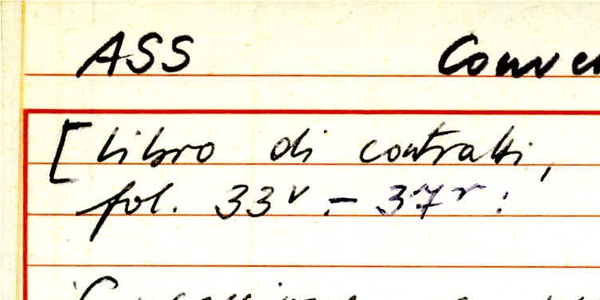 ASS Conve
[libro di contratti,
fol. 33v - 37r: